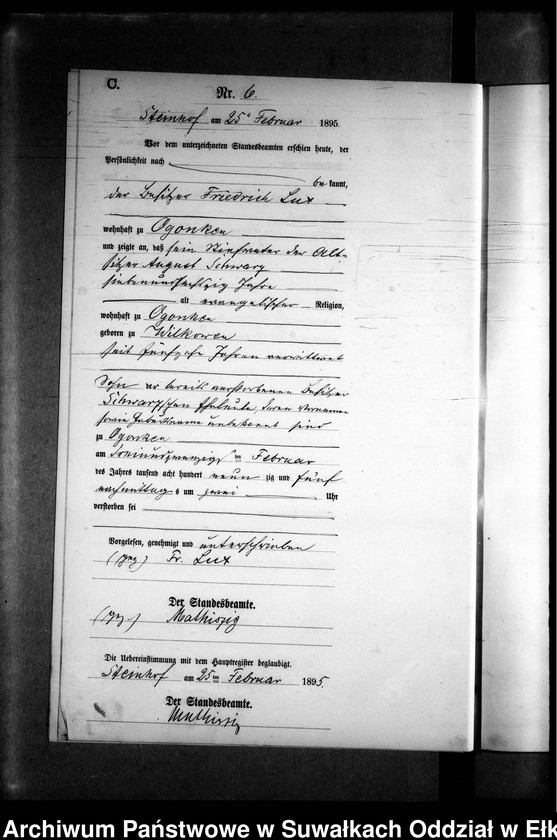 C.
Nr. 6.
Steinhof am 25ten Februar 1895.
Vor dem unterzeichneten Standesbeamten erschien heute, der
Persönlichkeit nach
be kannt,
der Besitzer Friedrich Lux
wohnhaft zu Ogonken
und zeigte an, daß sein Stiefvater der Alt-
sitzer August Schwarz
siebenundsechzig Jahre
alt evangelischer Religion,
wohnhaft zu Ogonken
geboren zu Wilkowen
seit Jahren verwittwet
Sohn der bereits verstorbenen Besitzer
Schwarz'schen Eheleute, deren Vornamen
sowie Geburtsname unbekannt sind
zu Ogonken
am dreiundzwanzigsten Februar
des Jahres tausend acht hundert neun zig und fünf
nachmittags um zwei Uhr
verstorben sei
Vorgelesen, genehmigt und unterschrieben
(gez) Fr. Lux
Der Standesbeamte.
(gez) Mathiszig
Die Uebereinstimmung mit dem Hauptregister beglaubigt.
Steinhof am 25ten Februar 1895.
Der Standesbeamte.
Mathiszig
Archiwum Państwowe w Suwałkach Oddział w Ełk